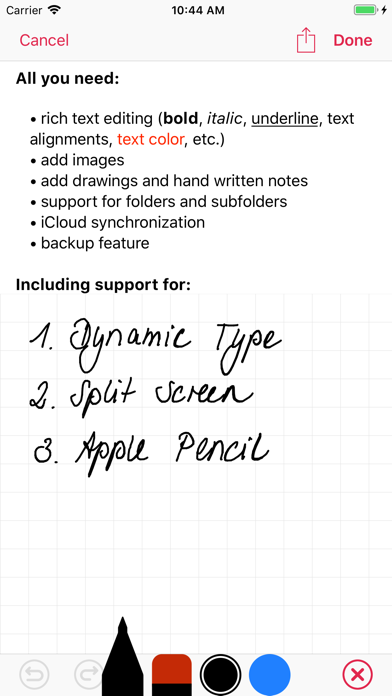 Carrier 10:44 AM
Cancel Done
All you need:
• rich text editing (bold, italic, underline, text
alignments, text color, etc.)
• add images
• add drawings and hand written notes
• support for folders and subfolders
• iCloud synchronization
• backup feature
Including support for:
1. Dynamic Type
2. Split Screen
3. Apple Pencil